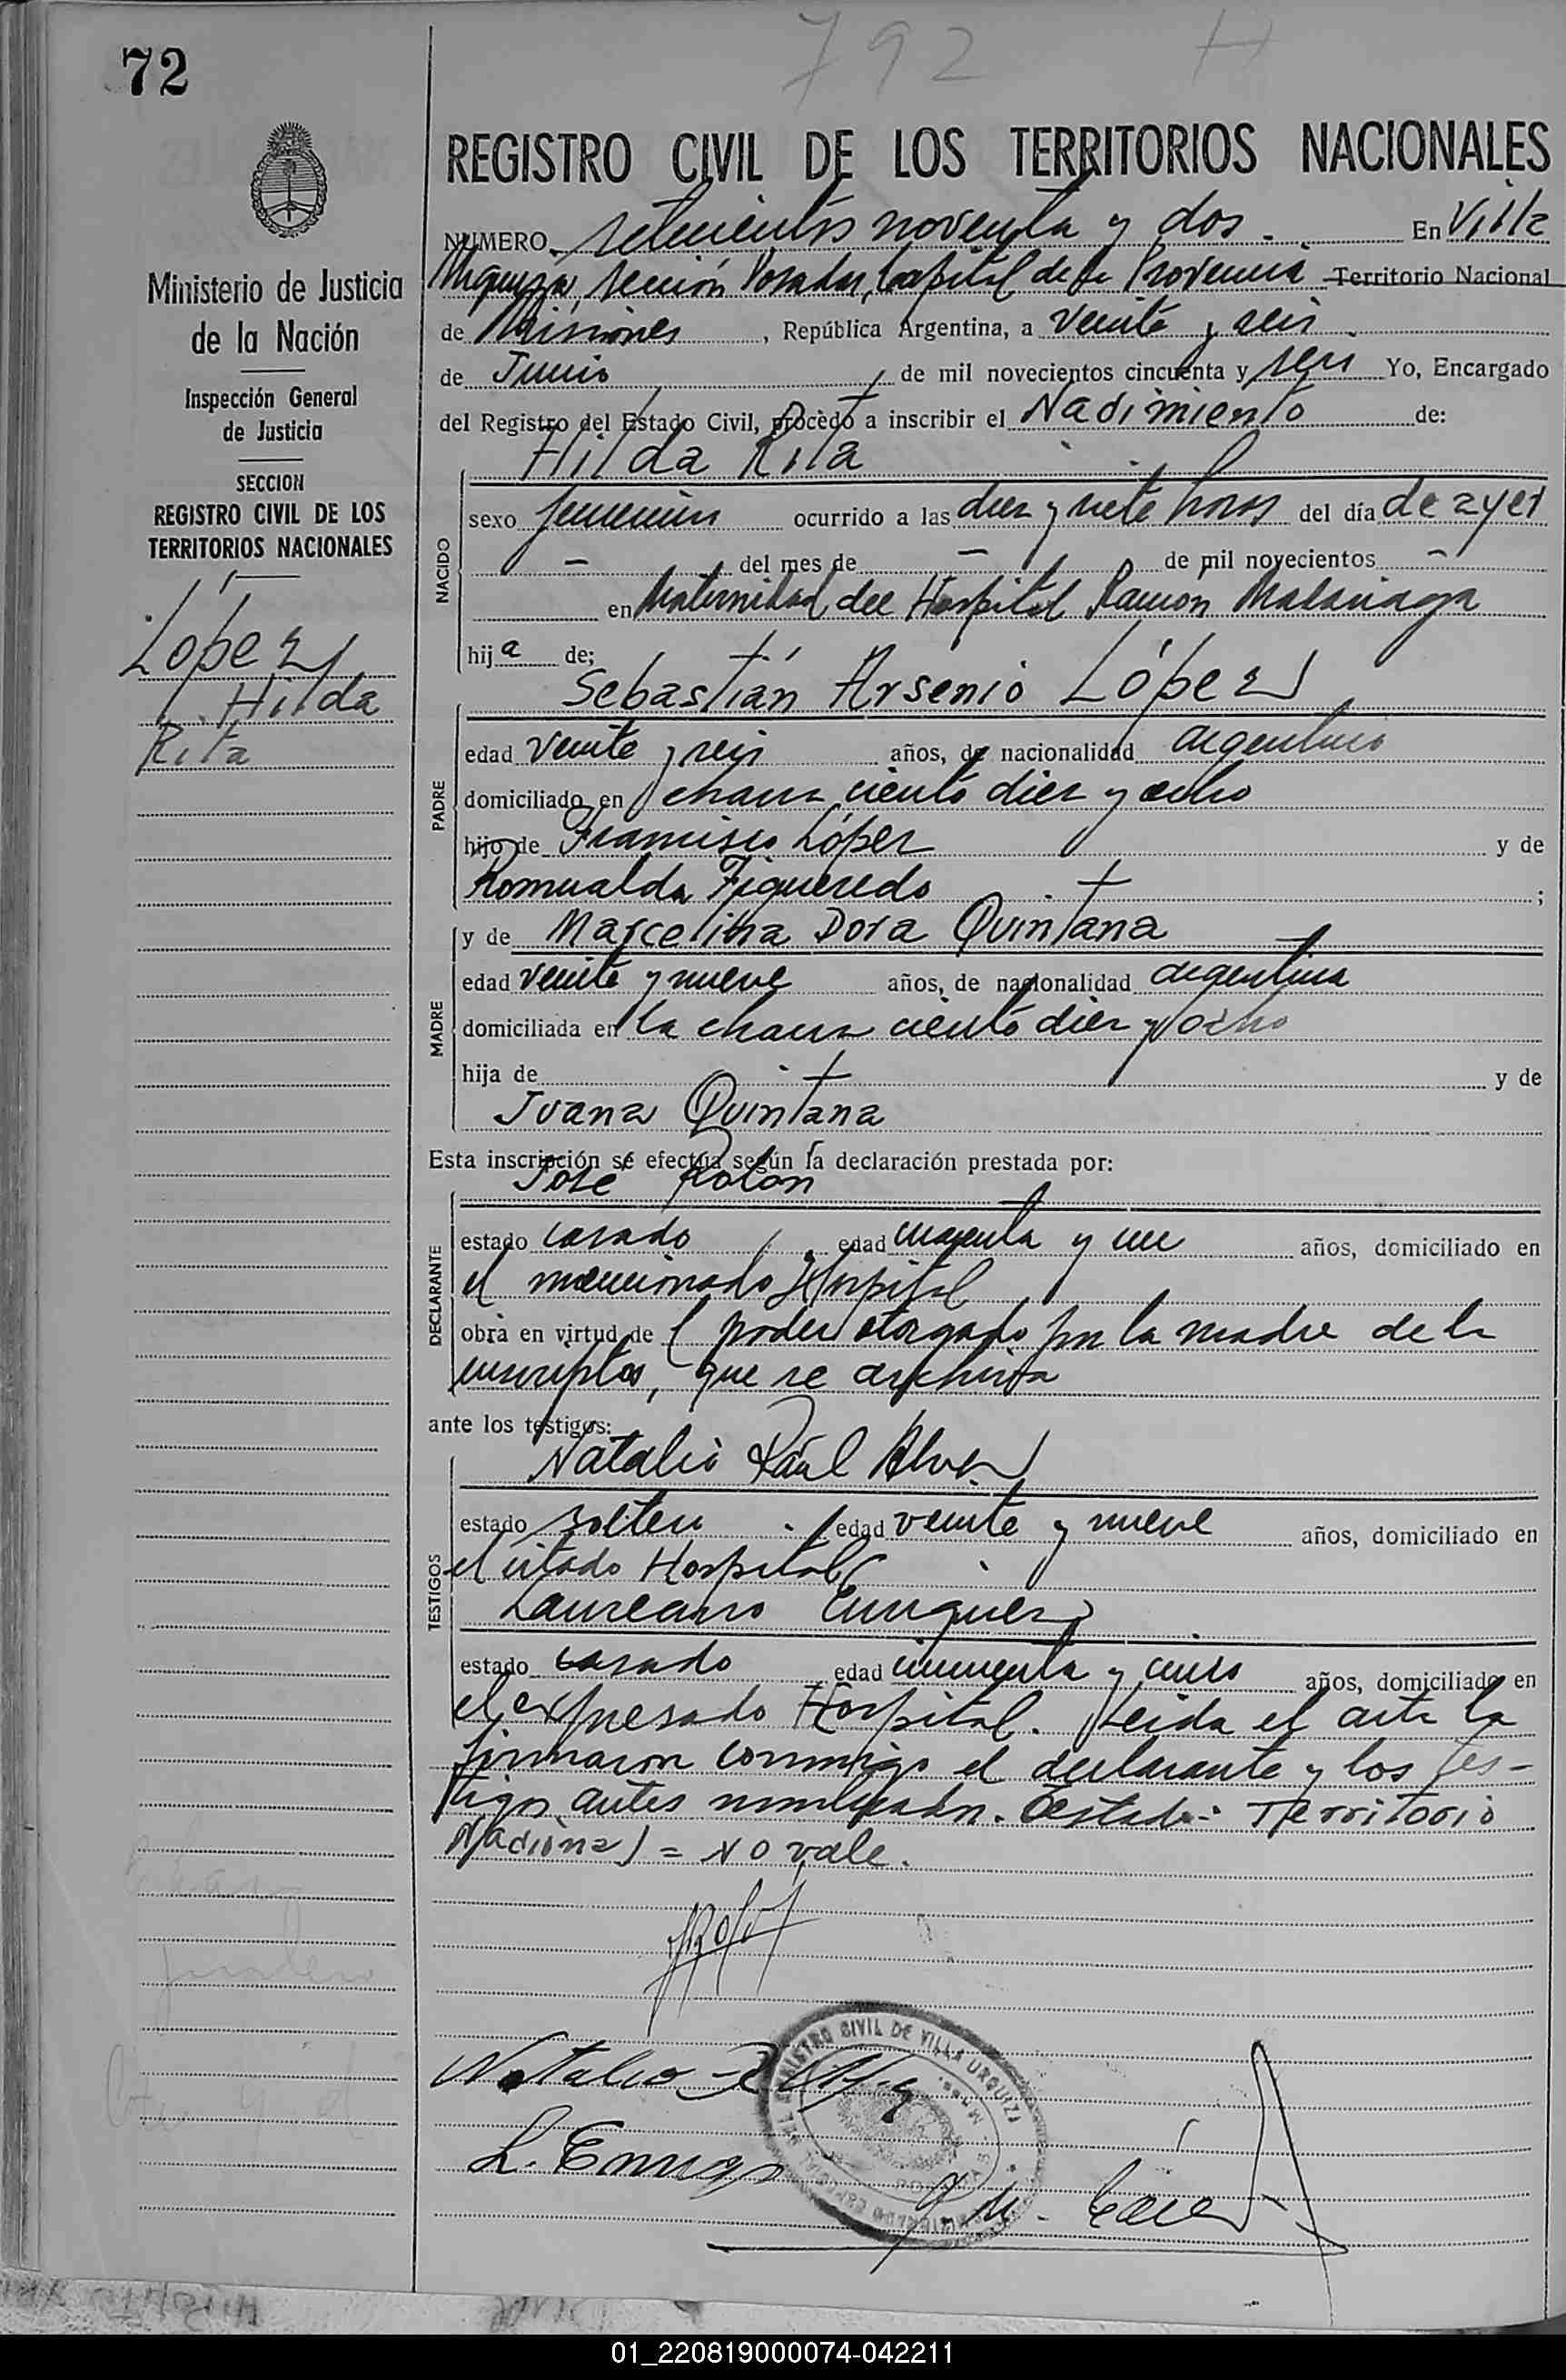 792 H
72
REGISTRO CIVIL DE LOS TERRITORIOS NACIONALES
NUMERO setecientos noventa y dos. En Villa
Urquiza sección Posadas, Capital de la Provincia Territorio Nacional
de Misiones, República Argentina, a veinte y seis
de Junio de mil novecientos cincuenta y seis Yo, Encargado
del Registro del Estado Civil, procedo a inscribir el Nacimiento de:
Hilda Rita
NACIDO
sexo femenino ocurrido a las diez y siete horas del día de ayer
— del mes de — de mil novecientos —
en Maternidad del Hospital Ramón Madariaga
hija de;
Sebastián Arsenio López
PADRE
edad veinte y seis años, de nacionalidad argentino
domiciliado en chacra ciento diez y ocho
hijo de Francisco López y de
Romualda Figueredo ;
y de Marcelina Dora Quintana
MADRE
edad veinte y nueve años, de nacionalidad argentina
domiciliada en la chacra ciento diez y ocho
hija de y de
Juana Quintana
Esta inscripción se efectúa según la declaración prestada por:
José Rolón
DECLARANTE
estado casado edad cuarenta y un años, domiciliado en
el mencionado Hospital
obra en virtud de poder otorgado por la madre de la
inscripta, que se archiva
ante los testigos:
Natalio Raúl Alvez
TESTIGOS
estado soltero edad veinte y nueve años, domiciliado en
el citado Hospital
Laureano Enriquez
estado casado edad cincuenta y cinco años, domiciliado en
el expresado Hospital. Leida el acta la
firmaron conmigo el declarante y los tes-
tigos antes nombrados. Testado: Territorio
Nacional = NO vale.
Natalio R
L. Enriq
REGISTRO CIVIL DE VILLA URQUIZA
Ministerio de Justicia
de la Nación
Inspección General
de Justicia
SECCION
REGISTRO CIVIL DE LOS
TERRITORIOS NACIONALES
López
Hilda
Rita
01_220819000074-042211